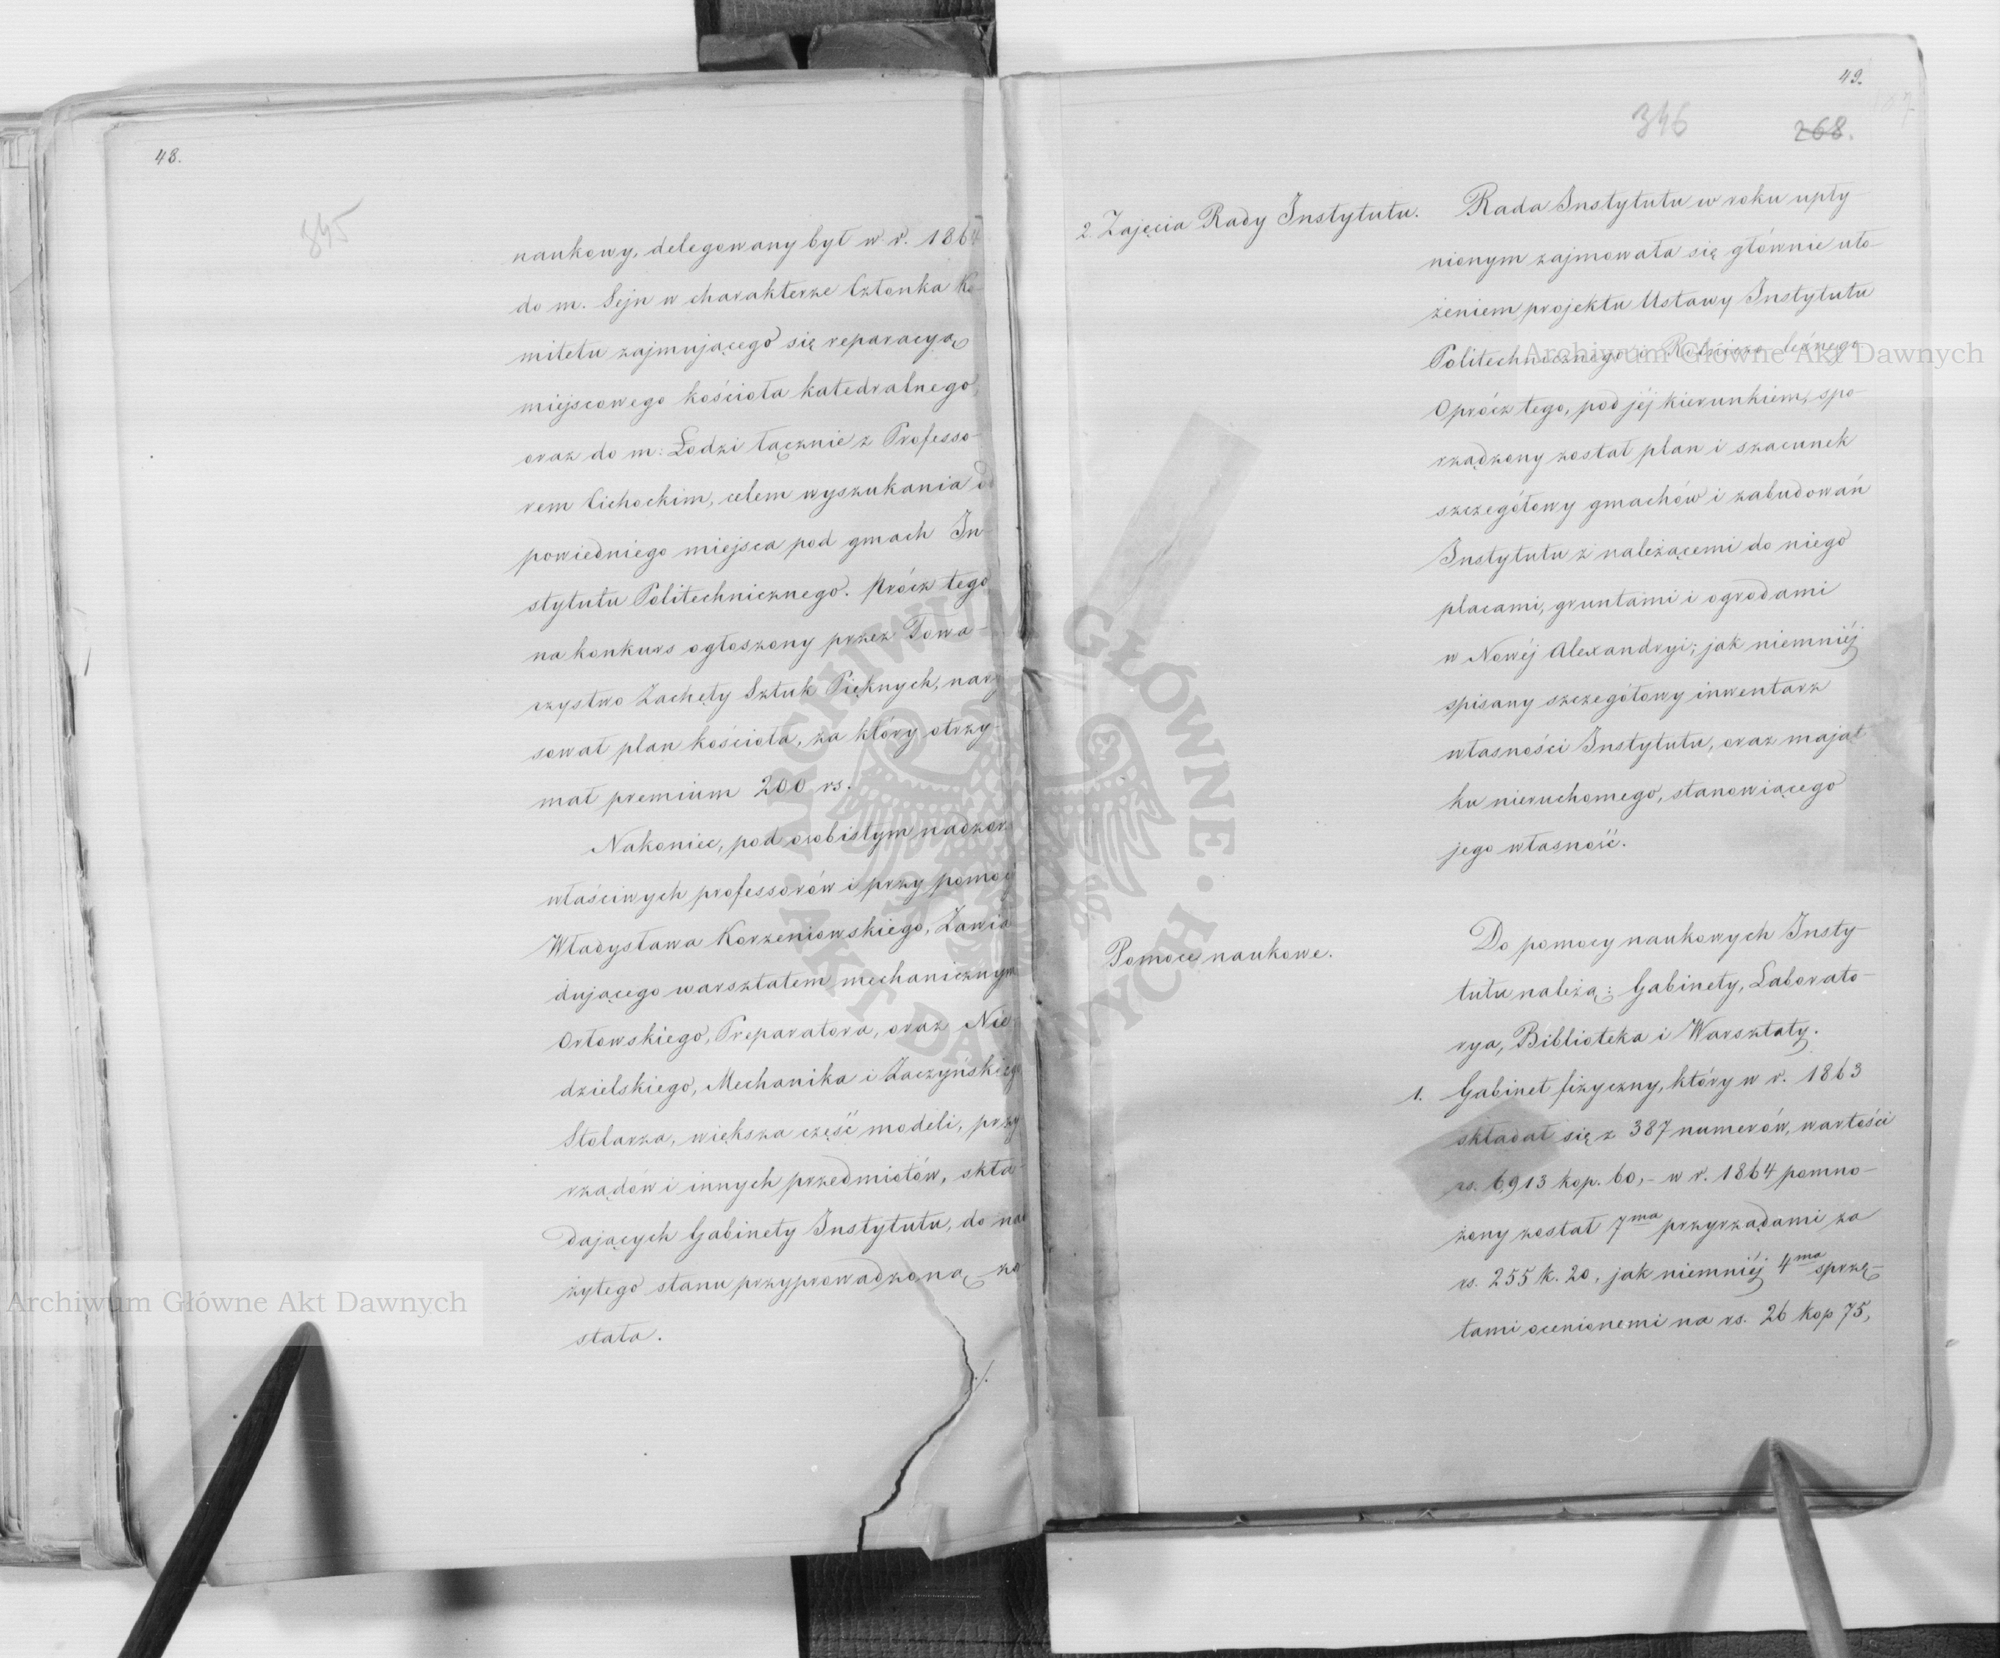 48.
845
naukowy, delegowany był w r. 1864
do m. Sejn w charakterze Członka Ko-
mitetu zajmującego się reparacyą
miejscowego kościoła katedralnego,
oraz do m: Łodzi łącznie z Professo-
rem Cichockim, celem wyszukania od
powiedniego miejsca pod gmach In-
stytutu Politechnicznego. Prócz tego
na konkurs ogłoszony przez Towa-
rzystwo Zachęty Sztuk Pięknych, nary
sował plan kościoła, za który otrzy-
mał premium 200 rs.
Nakoniec, pod osobistym nadzor
właściwych professorów i przy pomocy
Władysława Korzeniowskiego, Zawia
dującego warsztatem mechanicznym
Orłowskiego, Preparatora, oraz Nie-
dzielskiego, Mechanika i Zaczyńskieg
Stolarza, większa część modeli, przy
rządów i innych przedmiotów, skła-
dających Gabinety Instytutu, do nale
żytego stanu przyprowadzoną zo
stała.
./.
49.
346
268.
2. Zajęcia Rady Instytutu.
Rada Instytutu w roku upły-
nionym zajmowała się głównie uło-
żeniem projektu Ustawy Instytutu
Politechnicznego i Rolniczo leśnego
Oprócz tego, pod jéj kierunkiem, spo-
rządzony został plan i szacunek
szczegółowy gmachów i zabudowań
Instytutu z należącemi do niego
placami, gruntami i ogrodami
w Nowéj Alexandryi; jak niemniéj
spisany szczegółowy inwentarz
własności Instytutu, oraz mająt
ku nieruchomego, stanowiącego
jego własność.
Pomoce naukowe.
Do pomocy naukowych Insty-
tutu należą: Gabinety, Laborato-
rya, Biblioteka i Warsztaty.
1. Gabinet fizyczny, który w r. 1863
składał się z 387 numerów, wartości
rs. 6,913 kop. 60,- w r. 1864 pomno-
żony został 7ma przyrządami za
rs. 255 k. 20, jak niemniéj 4ma sprzę-
tami ocenionemi na rs. 26 kop 75,
Archiwum Główne Akt Dawnych
Archiwum Główne Akt Dawnych
ARCHIWUM GŁÓWNE AKT DAWNYCH